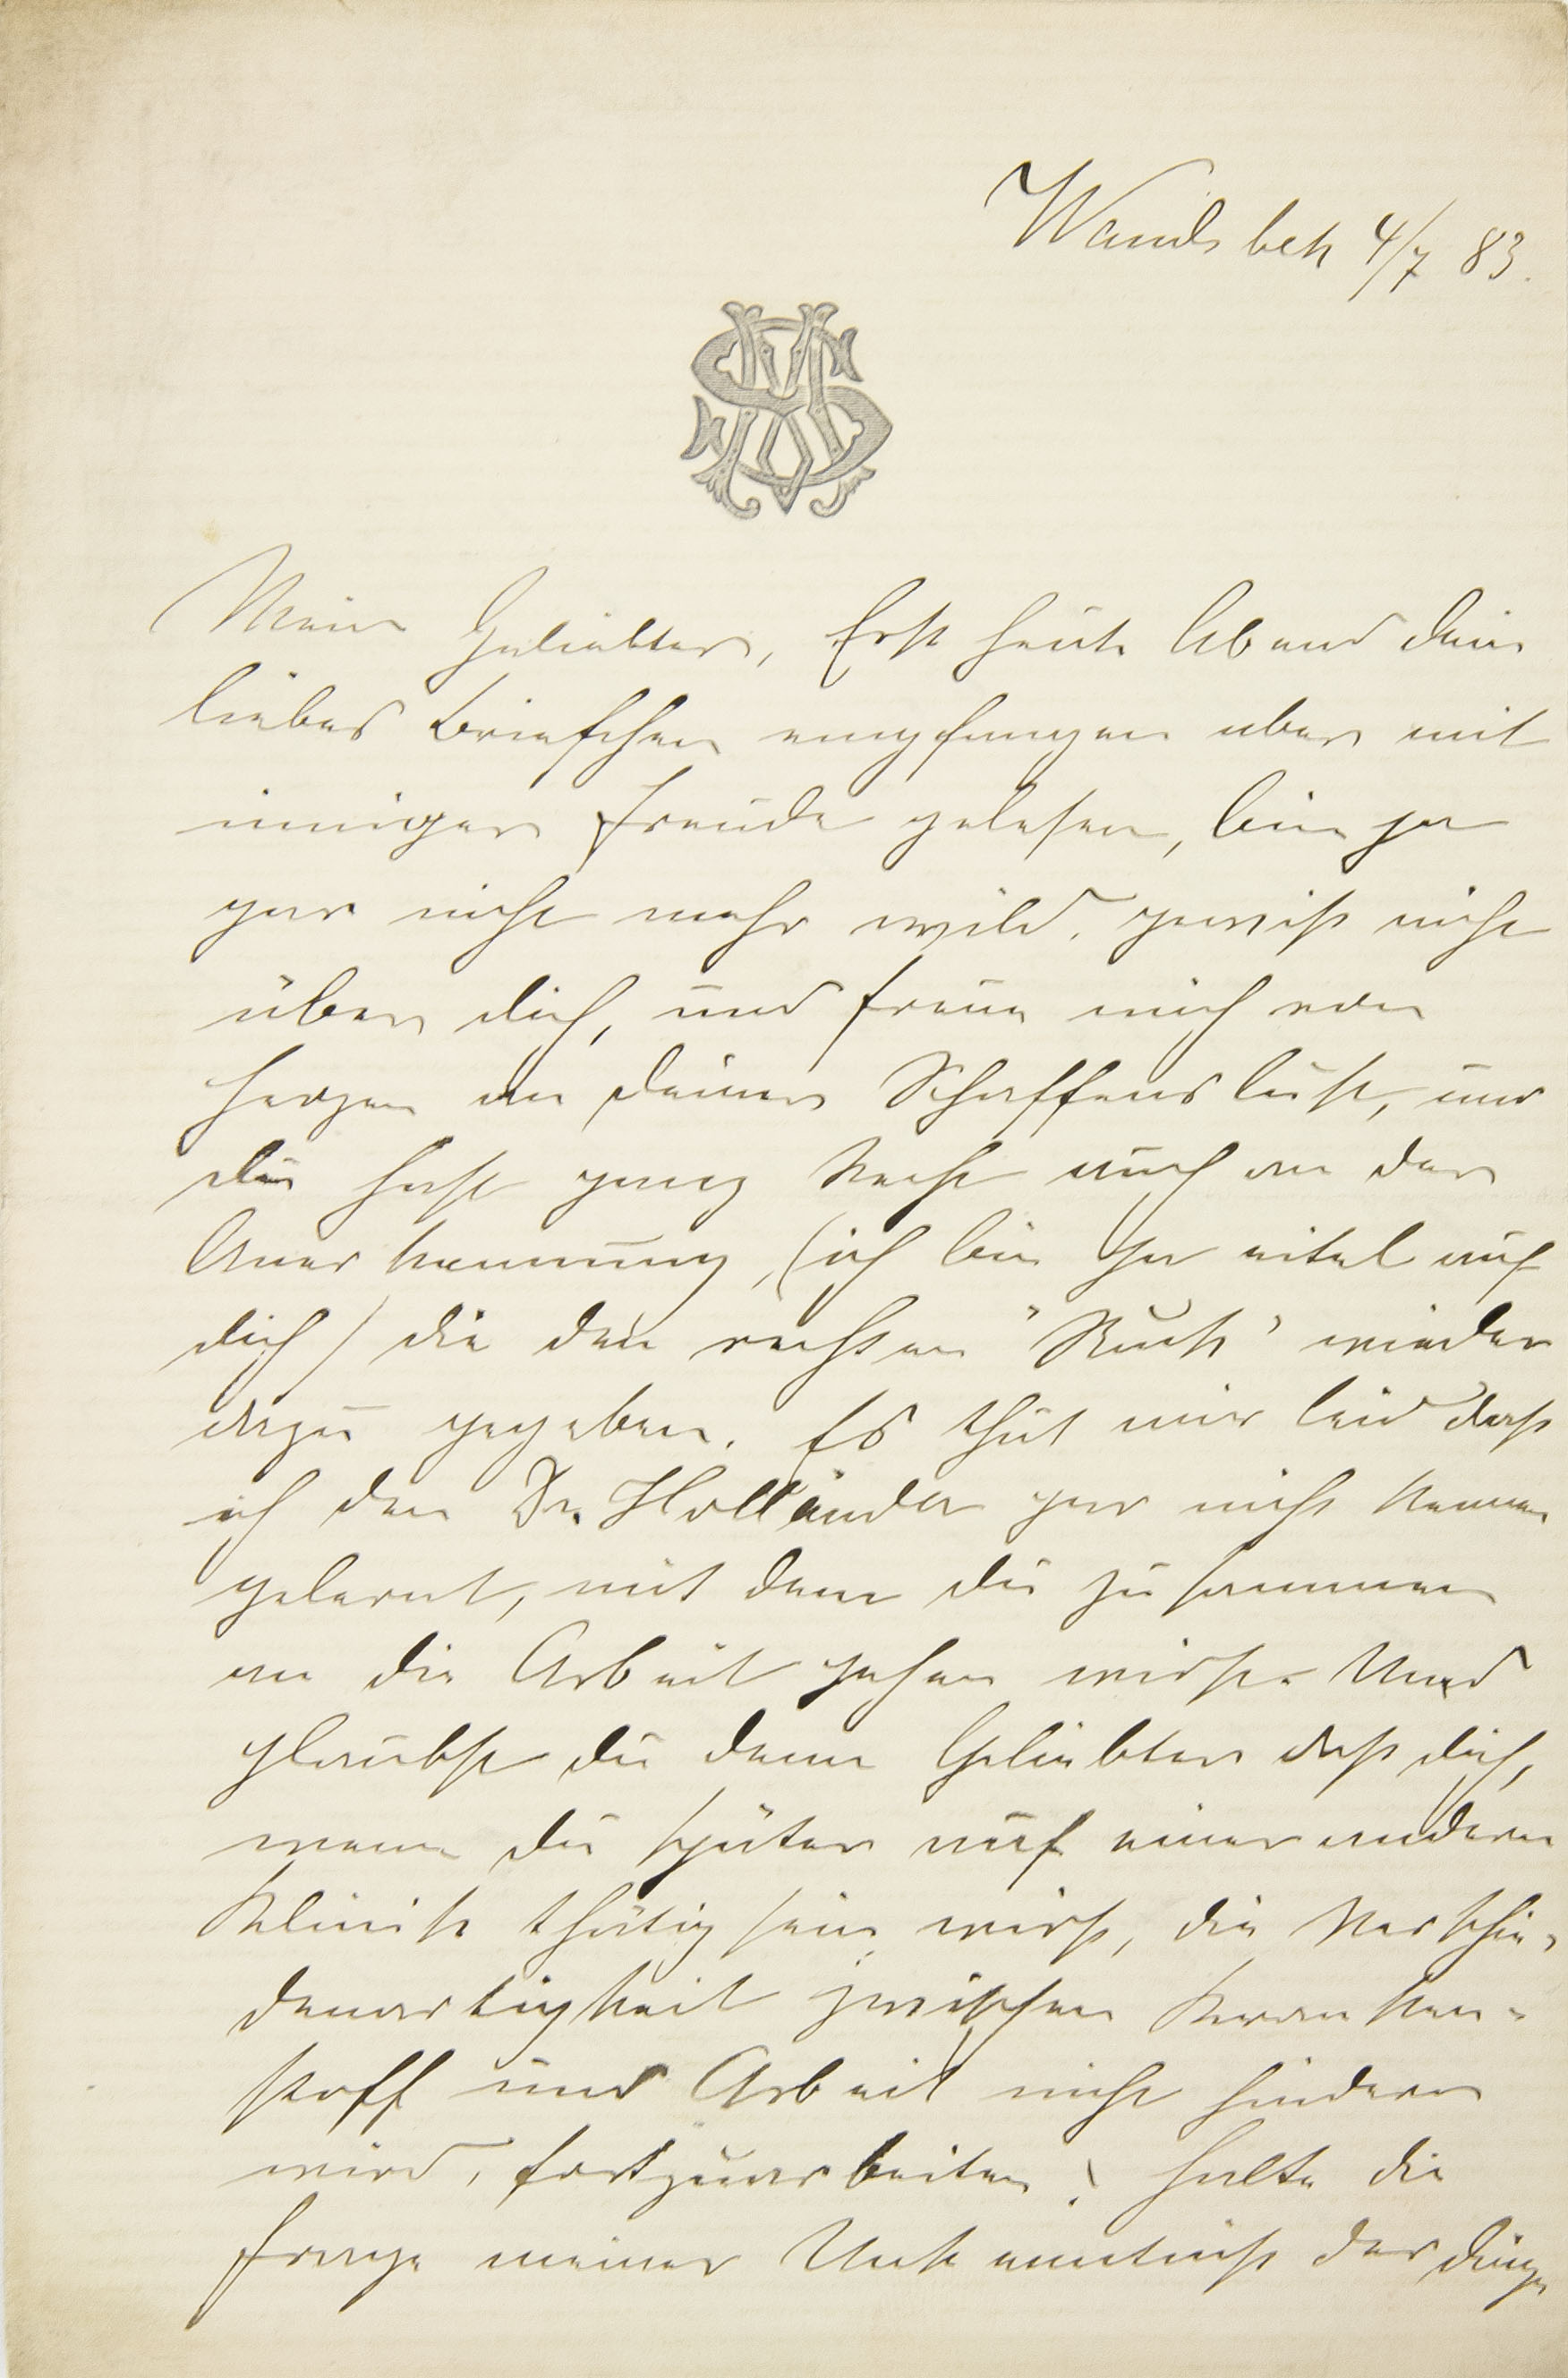 Wandsbek 4/7 83.
MS
Mein Geliebter, Erst heute Abend dein
liebes Briefchen empfangen aber mit
inniger Freude gelesen, bin ja
gar nicht mehr wild, gewiß nicht
über dich, und freue mich von
Herzen an deiner Schaffenslust, und
du hast ganz Recht auch an der
Anerkennung, (ich bin ja eitel auf
dich) die den rechten "Ruck" wieder
dazu gegeben. Es thut mir leid daß
ich den Dr. Holländer gar nicht kennen
gelernt, mit dem du zusammen
an die Arbeit gehen wirst. Und
glaubst du denn Geliebter daß dich,
wenn du später auf einer andern
Klinik thätig sein wirst, die Verschie-
denartigkeit zwischen Kranken-
stoff und Arbeit nicht hindern
wird, fortzuarbeiten? halte die
Frage meiner Unkenntniß der Dinge